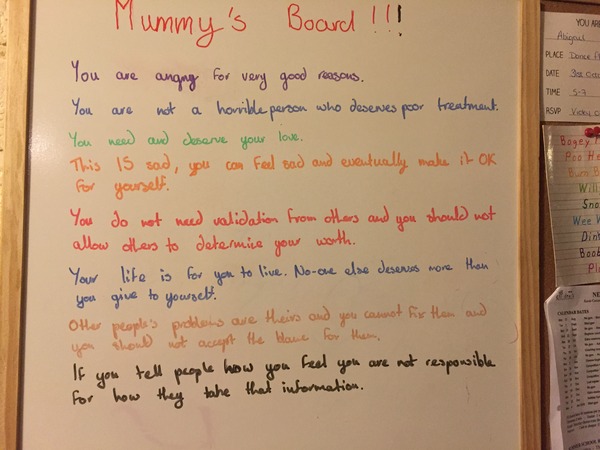 Mummy's Board !!!
You are angry for very good reasons.
You are not a horrible person who deserves poor treatment.
You need and deserve your love.
This IS sad, you can feel sad and eventually make it OK
for yourself.
You do not need validation from others and you should not
allow others to determine your worth.
Your life is for you to live. No-one else deserves more than
you give to yourself.
Other people's problems are theirs and you cannot fix them and
you should not accept the blame for them.
If you tell people how you feel you are not responsible
for how they take that information.
YOU ARE
Abigail
PLACE Dance
DATE
TIME 5-7
RSVP Vicky
Bogey
Poo He
Bum B
Wee W
CALENDAR DATES